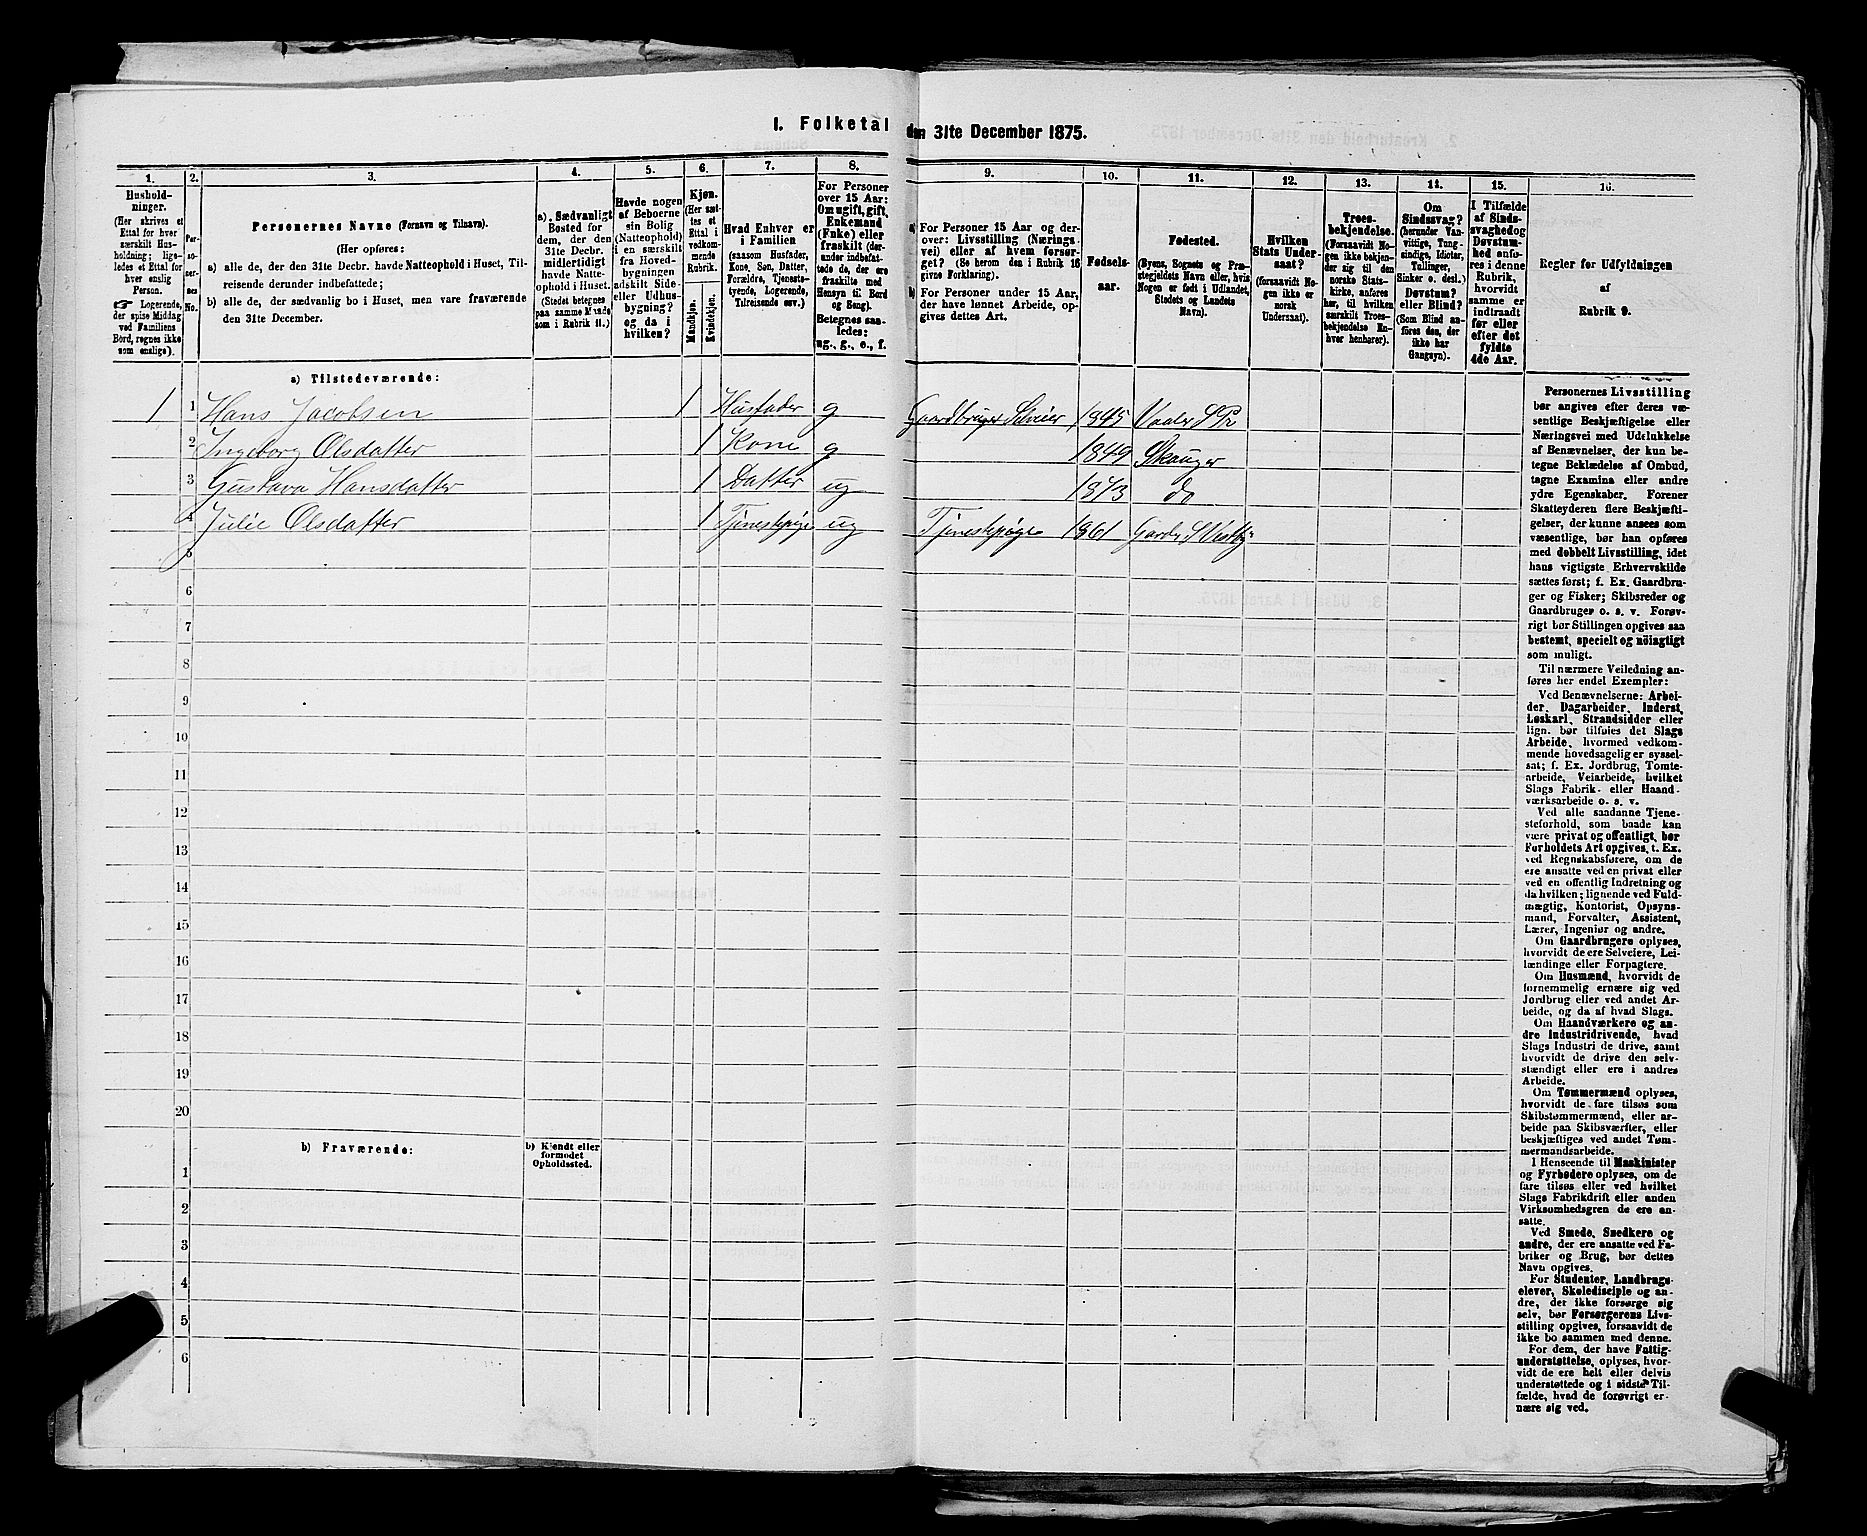 I. Folketal den 31te December 1875.
1. 2. 3. 4. 5. 6. 7. 8. 9. 10. 11. 12. 13. 14. 15. 16.
Hushold-
ninger.
(Her skrives et
Ettal for hver
særskilt Hus-
holdning; lige-
ledes et Ettal for
hver enslig
Person.
☞ Logerende,
der spise Middag
ved Familiens
Bord, regnes ikke
som enslige).
Per-
so-
ner-
nes
No.
Personernes Navne (Fornavn og Tilnavn).
(Her opføres:
a) alle de, der den 31te Decbr. havde Natteophold i Huset, Til-
reisende derunder indbefattede;
b) alle de, der sædvanlig bo i Huset, men vare fraværende
den 31te December.
a). Sædvanligt
Bosted for
dem, der den
31te Decbr.
midlertidigt
havde Natte-
ophold i Huset.
(Stedet betegnes
paa samme Maade
som i Rubrik 11.)
Havde nogen
af Beboerne
sin Bolig
(Natteophold)
i en særskilt
fra Hoved-
bygningen
adskilt Side-
eller Udhus-
bygning?
og da i
hvilken?
Kjøn.
(Her sæt-
tes et
Ettal i
vedkom-
mende
Rubrik.
Mandkjøn.
Kvindekjøn.
Hvad Enhver er
i Familien
(saasom Husfader,
Kone, Søn, Datter,
Forældre, Tjeneste-
tyende, Logerende,
Tilreisende osv.)
For Personer
over 15 Aar:
Om ugift, gift,
Enkemand
(Enke) eller
fraskilt (der-
under indbefat-
tede de, der ere
fraskilte med
Hensyn til Bord
og Seng).
Betegnes saa-
ledes:
ug., g., e., f.
a) For Personer 15 Aar og der-
over: Livsstilling (Nærings-
vei) eller af hvem forsør-
get? (Se herom den i Rubrik 16
givne Forklaring).
b) For Personer under 15 Aar,
der have lønnet Arbeide, op-
gives dettes Art.
Fødsels-
aar.
Fødested.
(Byens, Sognets og Præ-
stegjeldets Navn eller, hvis
Nogen er født i Udlandet,
Stedets og Landets
Navn).
Hvilken
Stats Under-
saat?
(forsaavidt No-
gen ikke er
norsk
Undersaat).
Troes-
bekjendelse.
(Forsaavidt No-
gen ikke bekjen-
der sig til den
norske Stats-
kirke, anføres
her, til hvilken
særskilt Troes-
bekjendelse En-
hver henhører).
Om
Sindssvag?
(herunder Van-
vittige, Tung-
sindige, Idioter,
Tullinger,
Sinker o. desl.)
Døvstum?
eller Blind?
(Som Blind an-
føres den, der
ikke har
Gangsyn).
I Tilfælde
af Sinds-
svaghed og
Døvstum-
hed anfø-
res i denne
Rubrik,
hvorvidt
samme er
indtraadt
før eller
efter det
fyldte
4de Aar.
Regler før Udfyldningen
af
Rubrik 9.
a) Tilstedeværende:
1 1 Hans Jacobsen 1 Husfader g Gaardbruger Selveier 1845 Vaaler S Pr
2 Ingeborg Olsdatter 1 Kone g 1849 Skauger
3 Gustava Hansdatter 1 Datter ug 1873 do
4 Julie Olsdatter 1 Tjenestepige ug Tjenestepige 1861
5
6
7
8
9
10
11
12
13
14
15
16
17
18
19
20
b) Fraværende:
b) Kjendt eller
formodet
Opholdssted.
1
2
3
4
5
6
Personernes Livsstilling
bør angives efter deres væ-
sentlige Beskjæftigelse eller
Næringsvei med Udelukkelse
af Benævnelser, der kun be-
tegne Beklædelse af Ombud,
tagne Examina eller andre
ydre Egenskaber. Forener
Skatteyderen flere Beskjæfti-
gelser, der kunne ansees som
væsentlige, bør han opføres
med dobbelt Livsstilling, idet
hans vigtigste Erhvervskilde
sættes først; f. Ex. Gaardbru-
ger og Fisker; Skibsreder og
Gaardbruger o. s. v. Forøv-
rigt bør Stillingen opgives saa
bestemt, specielt og nöiagtigt
som muligt.
Til nærmere Veiledning an-
føres her endel Exempler:
Ved Benævnelserne: Arbei-
der, Dagarbeider, Inderst,
Løskarl, Strandsidder eller
lign. bør tilføies det Slags
Arbeide, hvormed vedkom-
mende hovedsagelig er syssel-
sat; f. Ex. Jordbrug, Tomte-
arbeide, Veiarbeide, hvilket
Slags Fabrik- eller Haand-
værksarbeide o. s. v.
Ved alle saadanne Tjene-
steforhold, som baade kan
være privat og offentligt, bør
Forholdets Art opgives, t. Ex.
ved Regnskabsførere, om de
ere ansatte ved en privat eller
ved en offentlig Indretning og
da hvilken; lignende ved Fuld-
mægtig, Kontorist, Opsyns-
mand, Forvalter, Assistent,
Lærer, Ingeniør og andre.
Om Gaardbrugere oplyses,
hvorvidt de ere Selveiere, Lei-
lændinge eller Forpagtere.
Om Husmænd, hvorvidt de
fornemmelig ernære sig ved
Jordbrug eller ved andet Ar-
beide, og da af hvad Slags.
Om Haandværkere og an-
dre Industridrivende, hvad
Slags Industri de drive, samt
hvorvidt de drive den selv-
stændigt eller ere i andres
Arbeide.
Om Tømmermænd oplyses,
hvorvidt de fare tilsøs som
Skibstømmermænd, eller ar-
beide paa Skibsværfter, eller
beskjæftiges ved andet Tøm-
mermandsarbeide.
I Henseende til Maskinister
og Fyrbødere oplyses, om de
fare tilsøs eller ved hvilket
Slags Fabrikdrift eller anden
Virksomhedsgren de ere an-
satte.
Ved Smede, Snedkere og
andre, der ere ansatte ved Fa-
briker og Brug, bør dettes
Navn opgives.
For Studenter, Landbrugs-
elever, Skoledisciple og an-
dre, der ikke forsørge sig
selv, bør Forsørgerens Livs-
stilling opgives, forsaavidt de
ikke bo sammen med denne.
For dem, der have Fattig-
understøttelse, oplyses, hvor-
vidt de ere helt eller delvis
understøttede og i sidste Til-
fælde, hvad de forøvrigt er-
nære sig ved.